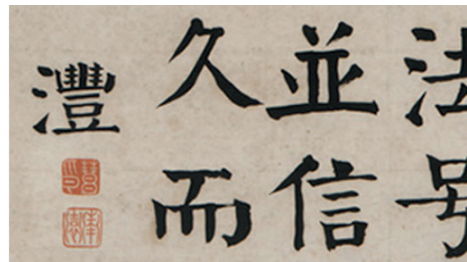 法号
並信
久而
灃